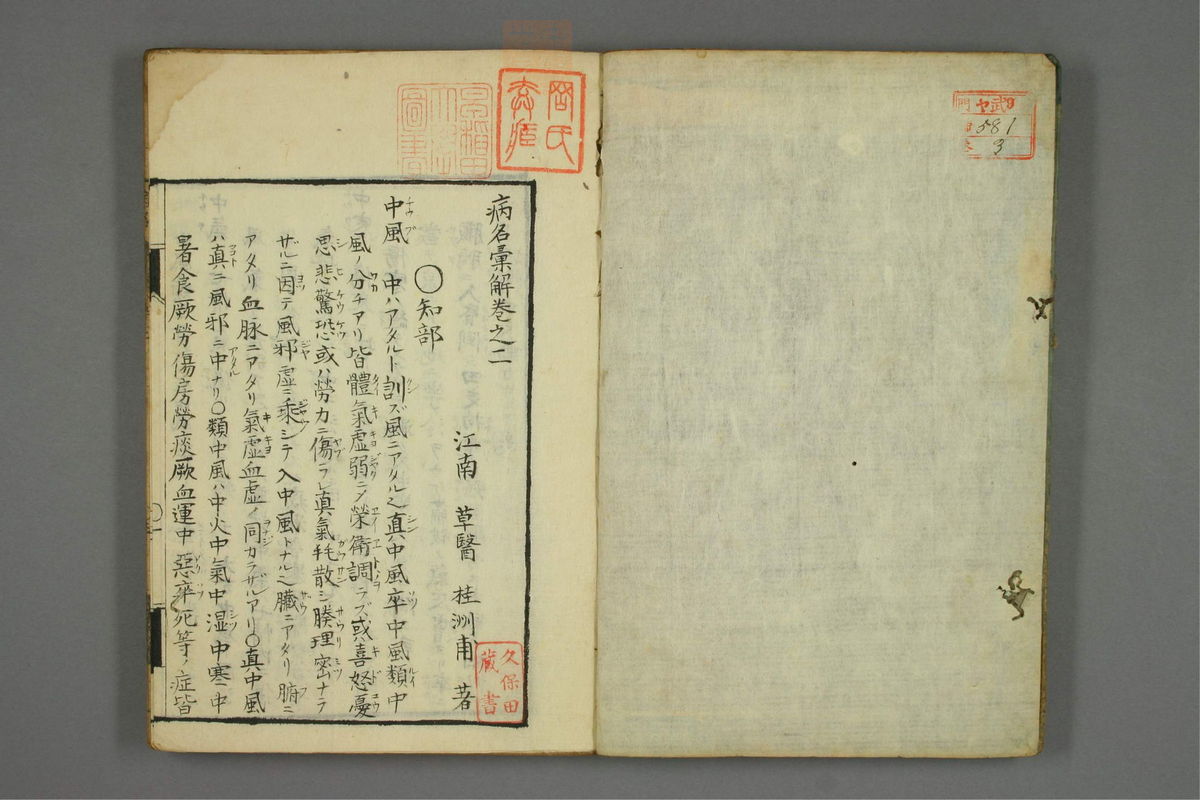 581
3
病名彙解巻之二
江南 草醫 桂洲甫 著
久保田
藏書
○知部
中風 中ハアタルト訓ズ風ニアタル也真中風卒中風類中
風ノ分チアリ皆體氣虚弱ニメ榮衛調ラズ或喜怒憂
思悲驚恐或ハ勞力ニ傷ラレ真氣耗散シ腠理密ナラ
ザルニ因テ風邪虚ニ乘シテ入中風トナル也臓ニアタリ腑ニ
アタリ血脉ニアタリ氣虚血虚ノ同カラザルアリ○真中風
ハ真ニ風邪ニ中ナリ○類中風ハ中火中氣中湿中寒中
暑食厥勞傷房勞痰厥血運中惡卒死等ノ症皆